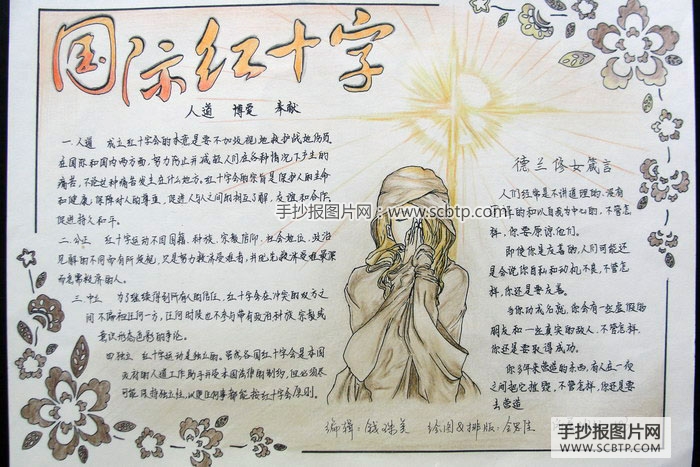 国际红十字
人道 博爱 奉献
一.人道 成立红十字会的本意是要不加歧视地救护战地伤员
在国际和国内两方面,努力防止并减轻人们在各种情况下产生的
痛苦,不论这种痛苦发生在什么地方。红十字会的宗旨是保护人的生命
和健康,保障对人的尊重,促进人与人之间的相互了解、友谊和合作,
促进持久和平。
二.公正 红十字运动不因国籍、种族、宗教信仰、社会地位、政治
见解的不同而有所歧视,只是努力救济受难者,并优先救济受难最深
而急需救济的人。
三.中立 为了继续得到所有人的信任,红十字会在冲突的双方之
间不偏袒任何一方,任何时候也不参与带有政治种族、宗教或
意识形态色彩的争论。
四.独立 红十字运动是独立的。虽然各国红十字会是本国
政府的人道工作助手并受本国法律的制约,但必须尽
可能保持独立性,以便任何事都能按红十字会原则。
手抄报图片网:www.scbtp.com
德兰修女箴言
人们经常是不讲道理的、没有
逻辑的和以自我为中心的,不管怎
样,你要原谅他们。
即使你是友善的,人们可能还
是会说你自私和动机不良,不管怎
样,你还是要友善。
当你功成名就,你会有一些虚假的
朋友和一些真实的敌人,不管怎样,
你还是要取得成功。
你多年来营造的东西,有人在一夜
之间把它摧毁,不管怎样,你还是要
去营造
编辑:钱珠美 绘图&排版:
手抄报图片网
WWW.SCBTP.COM